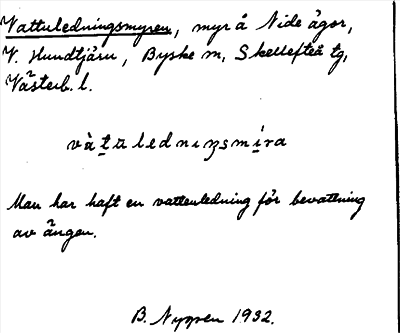 Vattuledningsmyren, myr å Nide ägor,
V. Hundtjärn, Byske sn, Skellefteå tg,
Västerb. l.
vàt̲u̅lednıŋsmí̲ra
Man har haft en vattenledning för bevattning
av ängen.
B. Nygren 1932.